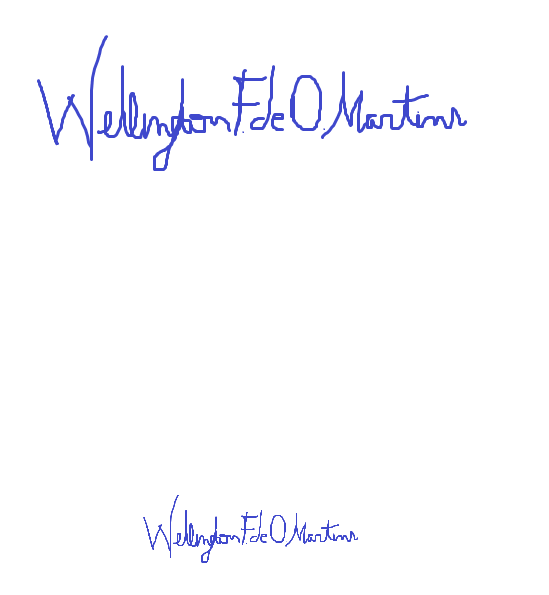 Wellington F. de O. Martins
Wellington F. de O. Martins